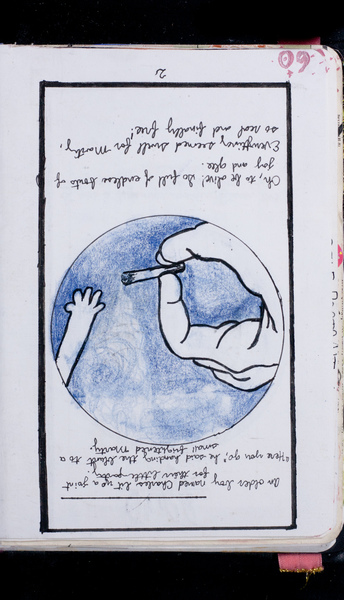 An older boy named Charles lit up a joint
for their little party;
"Here you go," he said handing the blunt to a
small frightened Marty.
Oh, to be alive! So full of endless bouts of
joy and glee.
Everything seemed swell for Marty,
so real and finally free!
2
60